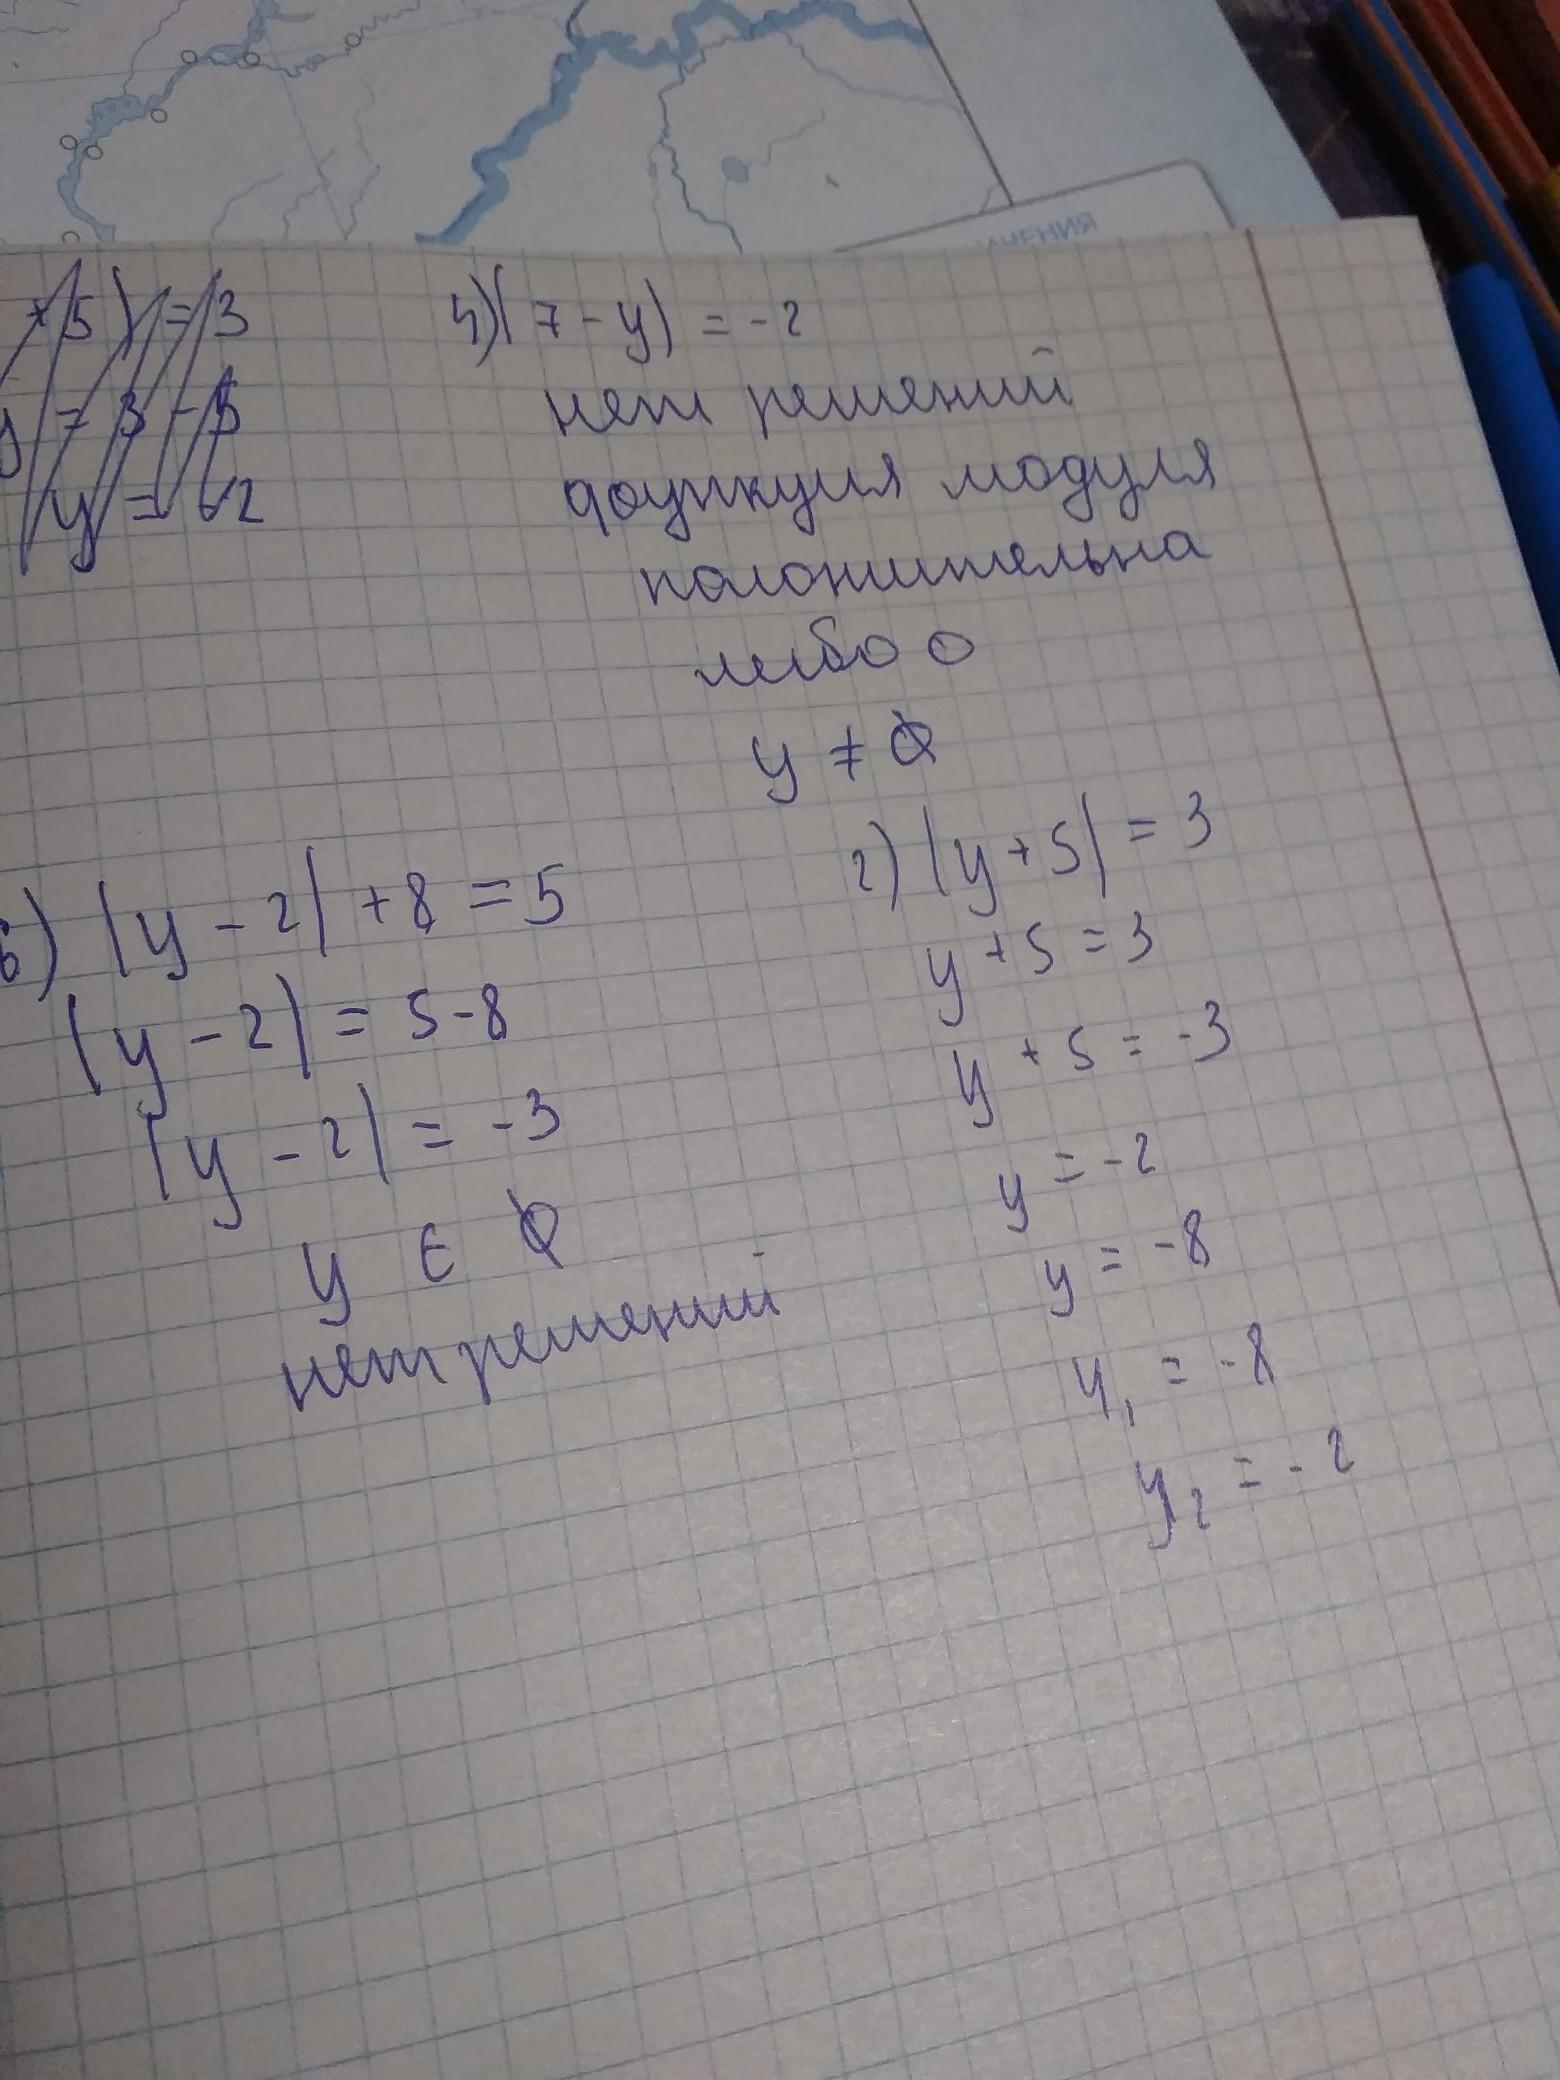 ЧЕНИЯ
+5) = 3
y = 3 - 5
y = -2
4) (7 - y) = -2
нет решений
функция модуля
положительна
либо 0
y ≠ ∅
6) |y - 2| + 8 = 5
|y - 2| = 5 - 8
|y - 2| = -3
y ∈ ∅
нет решений
2) |y + 5| = 3
y + 5 = 3
y + 5 = -3
y = -2
y = -8
y₁ = -8
y₂ = -2